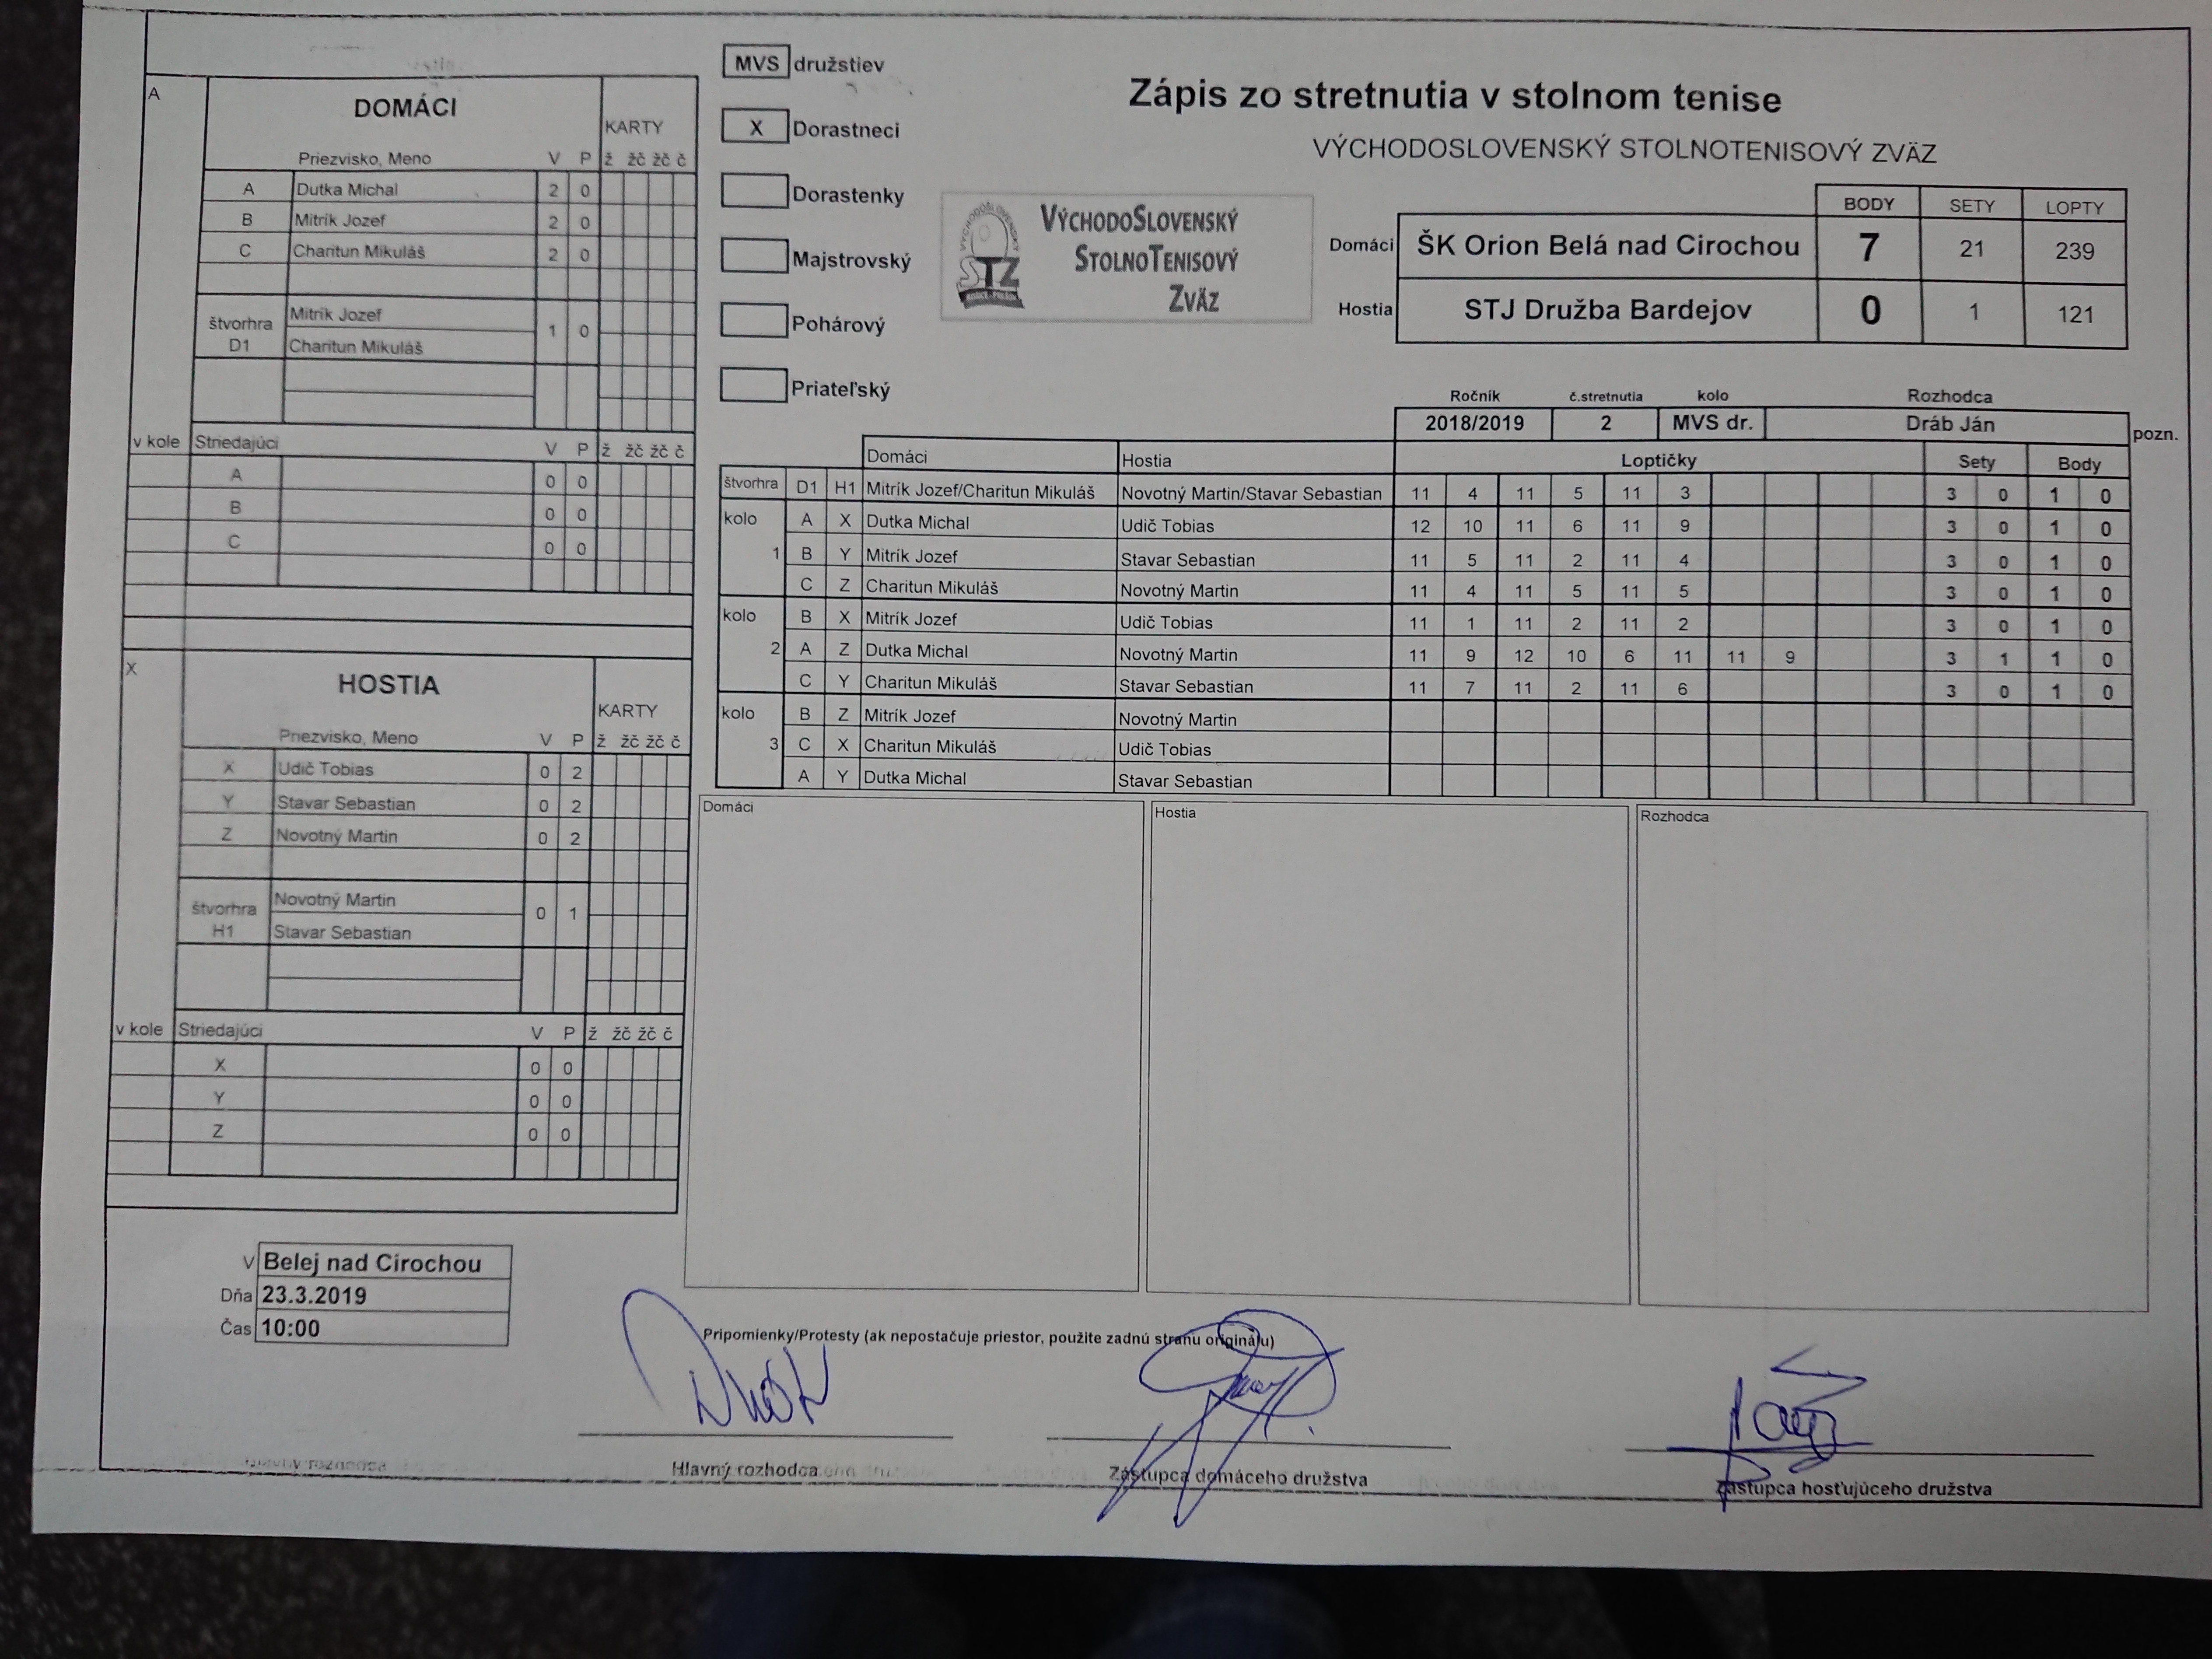 MVS družstiev
X Dorastneci
Dorastenky
Majstrovský
Pohárový
Priateľský
Zápis zo stretnutia v stolnom tenise
VÝCHODOSLOVENSKÝ STOLNOTENISOVÝ ZVÄZ
VÝCHODOSLOVENSKÝ
STOLNOTENISOVÝ
ZVÄZ
STZ
BODY SETY LOPTY
Domáci ŠK Orion Belá nad Cirochou 7 21 239
Hostia STJ Družba Bardejov 0 1 121
Ročník č.stretnutia kolo Rozhodca
2018/2019 2 MVS dr. Dráb Ján pozn.
A
DOMÁCI
KARTY
Priezvisko, Meno V P ž žč žč č
A Dutka Michal 2 0
B Mitrík Jozef 2 0
C Charitun Mikuláš 2 0
štvorhra D1
Mitrík Jozef
Charitun Mikuláš
1 0
v kole Striedajúci V P ž žč žč č
A 0 0
B 0 0
C 0 0
X
HOSTIA
KARTY
Priezvisko, Meno V P ž žč žč č
X Udič Tobias 0 2
Y Stavar Sebastian 0 2
Z Novotný Martin 0 2
štvorhra H1
Novotný Martin
Stavar Sebastian
0 1
v kole Striedajúci V P ž žč žč č
X 0 0
Y 0 0
Z 0 0
Domáci Hostia Loptičky Sety Body
štvorhra D1 H1 Mitrík Jozef/Charitun Mikuláš Novotný Martin/Stavar Sebastian 11 4 11 5 11 3 3 0 1 0
kolo 1
A X Dutka Michal Udič Tobias 12 10 11 6 11 9 3 0 1 0
B Y Mitrík Jozef Stavar Sebastian 11 5 11 2 11 4 3 0 1 0
C Z Charitun Mikuláš Novotný Martin 11 4 11 5 11 5 3 0 1 0
kolo 2
B X Mitrík Jozef Udič Tobias 11 1 11 2 11 2 3 0 1 0
A Z Dutka Michal Novotný Martin 11 9 12 10 6 11 11 9 3 1 1 0
C Y Charitun Mikuláš Stavar Sebastian 11 7 11 2 11 6 3 0 1 0
kolo 3
B Z Mitrík Jozef Novotný Martin
C X Charitun Mikuláš Udič Tobias
A Y Dutka Michal Stavar Sebastian
Domáci Hostia Rozhodca
V Belej nad Cirochou
Dňa 23.3.2019
Čas 10:00
Pripomienky/Protesty (ak nepostačuje priestor, použite zadnú stranu originálu)
Hlavný rozhodca
Zástupca domáceho družstva
Zástupca hosťujúceho družstva